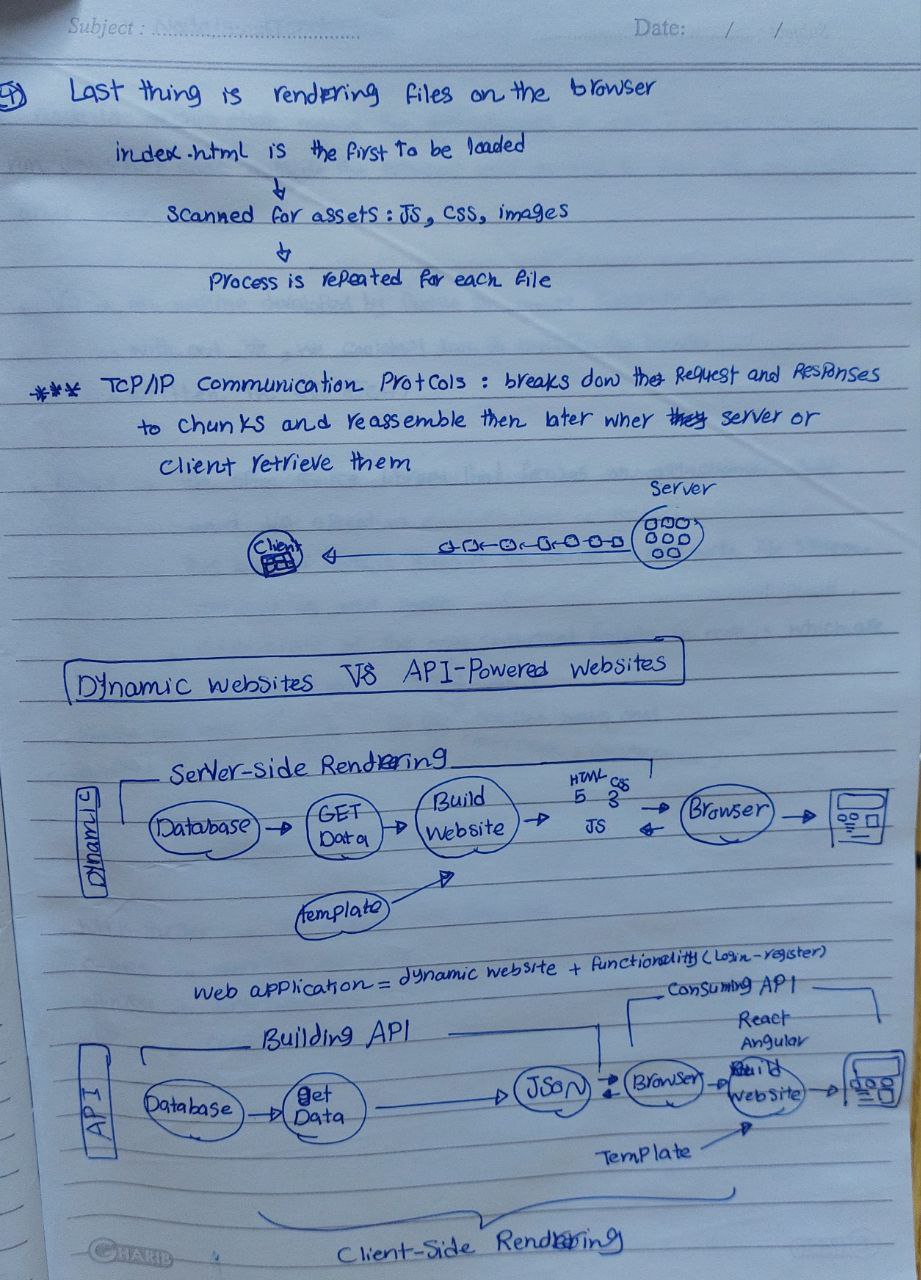 Subject :
Date: / /
4 Last thing is rendering files on the browser
index.html is the first to be loaded
↓
Scanned for assets : JS, CSS, images
↓
Process is repeated for each file
*** TCP/IP Communication Protcols : breaks dow the Request and Responses
to chunks and reassemble then later wher they server or
Client retrieve them
Server
Client
Dynamic websites VS API-Powered websites
Server-side Rendering
DYNAMIC
Database → GET Data → Build Website → HTML 5 CSS 3 JS → Browser →
template
Web application = dynamic website + functionality (Login-register)
Consuming API
Building API
React
Angular
API
Database → get Data → JSON → Browser → Build website →
Template
Client-Side Rendering
GHARIB